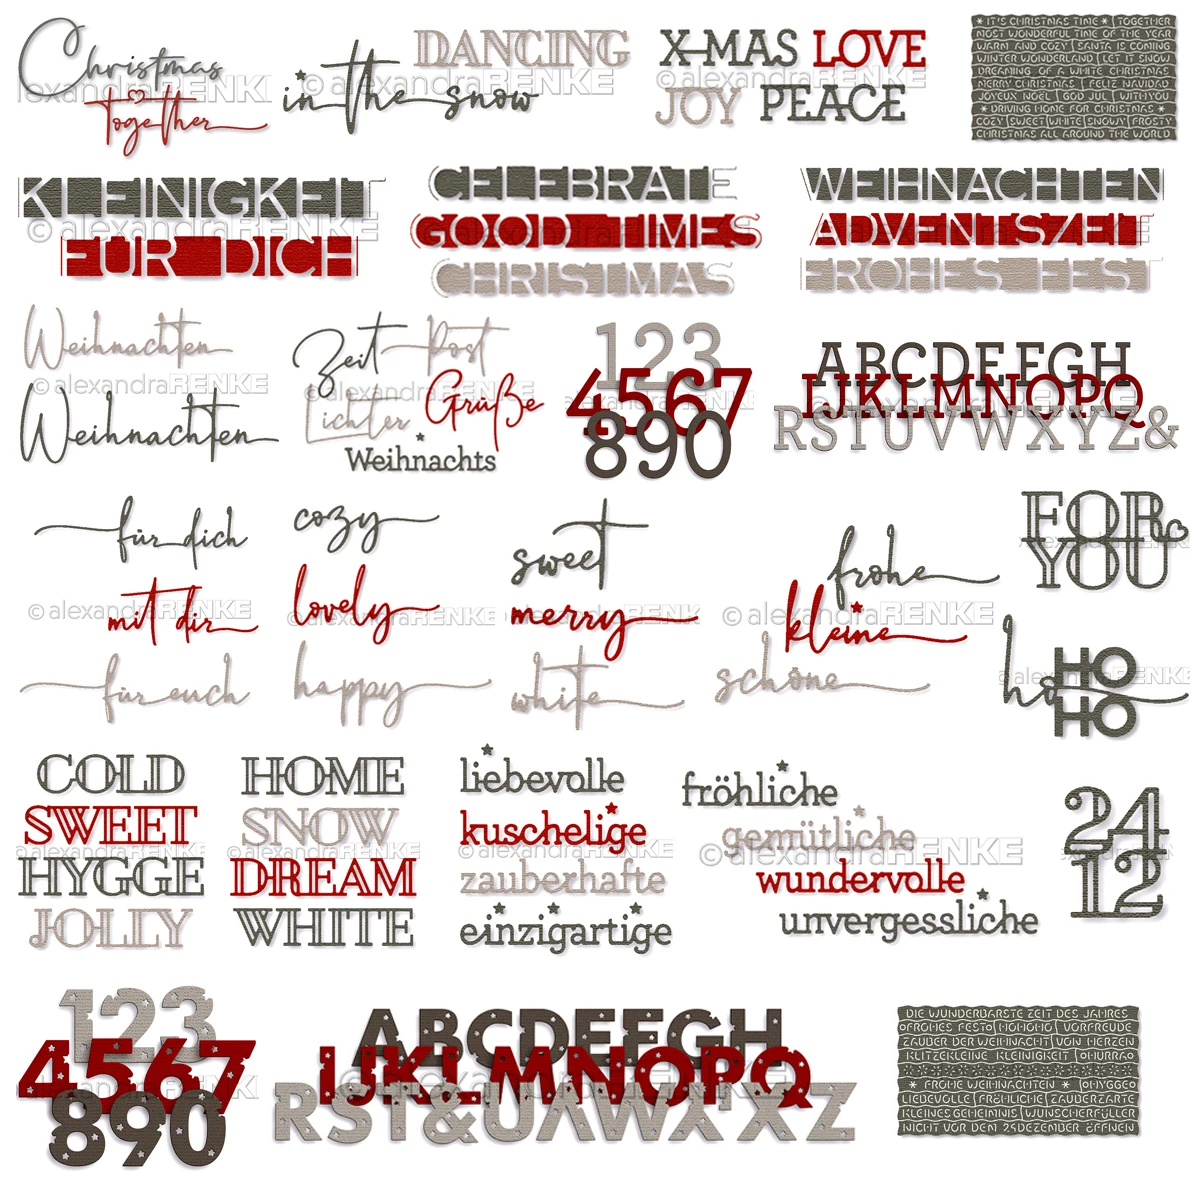 Christmas
together
in the snow
DANCING
X-MAS LOVE
JOY PEACE
* IT'S CHRISTMAS TIME * TOGETHER
MOST WONDERFUL TIME OF THE YEAR
WARM AND COZY SANTA IS COMING
WINTER WONDERLAND LET IT SNOW
DREAMING OF A WHITE CHRISTMAS
MERRY CHRISTMAS FELIZ NAVIDAD
JOYEUX NOËL GOD JUL WITH YOU
* DRIVING HOME FOR CHRISTMAS *
COZY SWEET WHITE SNOWY FROSTY
CHRISTMAS ALL AROUND THE WORLD
© alexandraRENKE
KLEINIGKEIT
FÜR DICH
CELEBRATE
GOOD TIMES
CHRISTMAS
WEIHNACHTEN
ADVENTSZEIT
FROHES FEST
Weihnachten
Weihnachten
Zeit Post
Lichter Grüße
Weihnachts
123
4567
890
ABCDEFGH
IJKLMNOPQ
RSTUVWXYZ&
für dich
mit dir
für euch
cozy
lovely
happy
sweet
merry
white
frohe
kleine
schöne
FOR
YOU
ho HO
HO
COLD
SWEET
HYGGE
JOLLY
HOME
SNOW
DREAM
WHITE
liebevolle
kuschelige
zauberhafte
einzigartige
fröhliche
gemütliche
wundervolle
unvergessliche
24
12
123
4567
890
ABCDEFGH
IJKLMNOPQ
RST&UVWXYZ
DIE WUNDERBARSTE ZEIT DES JAHRES
FROHES FEST HOHOHO VORFREUDE
ZAUBER DER WEIHNACHT VON HERZEN
KLITZEKLEINE KLEINIGKEIT HURRA
* FROHE WEIHNACHTEN * HYGGE
LIEBEVOLLE FRÖHLICHE ZAUBERZARTE
KLEINES GEHEIMNIS WUNSCHERFÜLLER
NICHT VOR DEM 24.DEZEMBER ÖFFNEN